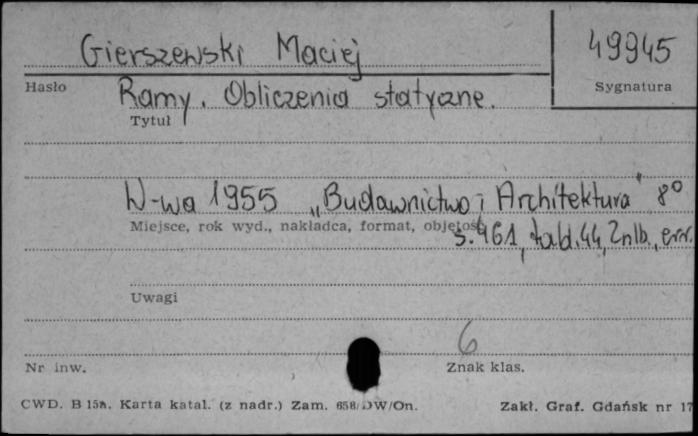 Gierszewski Maciej
49945
Hasło
Sygnatura
Ramy. Obliczenia statyczne.
Tytuł
W-wa 1955 „Budawnictwo i Architektura" 8°
Miejsce, rok wyd., nakładca, format, objętość
s. 461, tabl. 44, 2 nlb., err.
Uwagi
6
Nr inw.
Znak klas.
CWD. B 15a. Karta katal. (z nadr.) Zam. 658/DW/On.
Zakł. Graf. Gdańsk nr 17